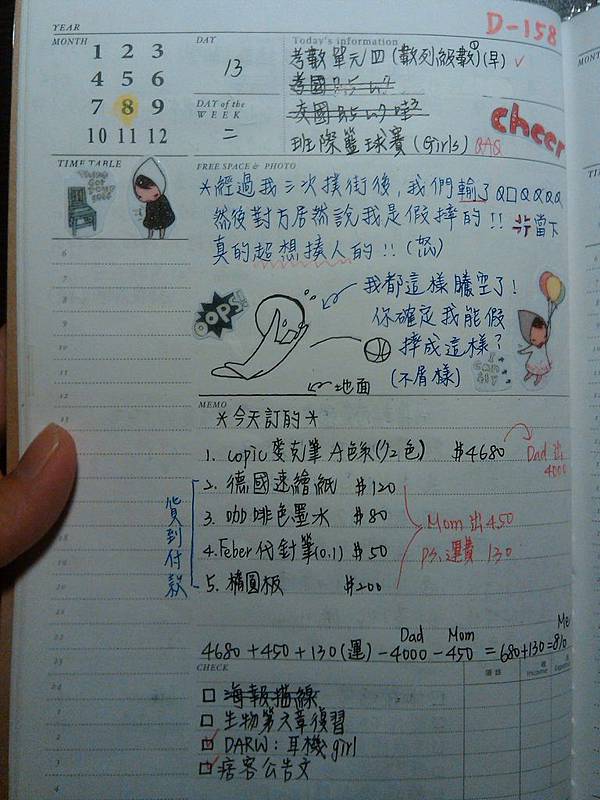 D-158
YEAR
MONTH
1 2 3
4 5 6
7 8 9
10 11 12
DAY
13
DAY of the WEEK
二
Today's information
考數單元四(數列級數)(早) ✓
考國
交國
班際籃球賽(Girls) QAQ
cheer
TIME TABLE
FREE SPACE & PHOTO
*經過我三次撲街後,我們輸了Q口QQQQ
然後對方居然說我是假摔的!! 當下
真的超想揍人的!!(怒)
OOPS!!
我都這樣騰空了!
你確定我能假
摔成這樣?
(不屑樣)
I CAN FLY
地面
MEMO
*今天訂的*
1. copic麥克筆 A色系(72色) $4680
Dad 出 4000
2. 德國速繪紙 $120
3. 咖啡色墨水 $80
4. Feber代針筆(0.1) $50
5. 橢圓板 $200
貨到付款
Mom出450
P.S. 運費 130
Dad Mom Me
4680+450+130(運)-4000-450=680+130=810
CHECK
□ 海報描線
□ 生物第六章復習
☑ DARW: 耳機girl
☑ 痞客公告文